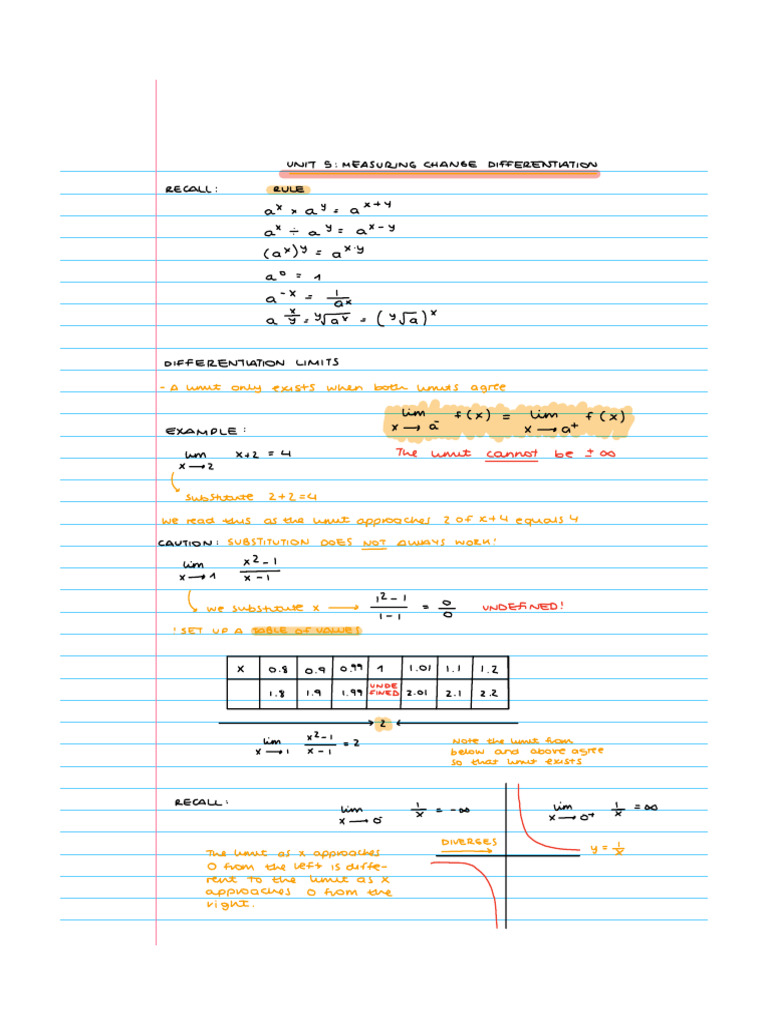 UNIT 5: MEASURING CHANGE DIFFERENTIATION
RECALL: RULE
a^x × a^y = a^(x+y)
a^x ÷ a^y = a^(x-y)
(a^x)^y = a^(x·y)
a^0 = 1
a^(-x) = 1/a^x
a^(x/y) = y√a^x = (y√a)^x
DIFFERENTIATION LIMITS
- A limit only exists when both limits agree
lim x→a⁻ f(x) = lim x→a⁺ f(x)
EXAMPLE:
The limit cannot be ±∞
lim x→2 x+2 = 4
substitute 2+2=4
we read this as the limit approaches 2 of x+4 equals 4
CAUTION: SUBSTITUTION DOES NOT ALWAYS WORK!
lim x→1 (x²-1)/(x-1)
we substitute x → (1²-1)/(1-1) = 0/0 UNDEFINED!
! SET UP A TABLE OF VALUES
x 0.8 0.9 0.99 1 1.01 1.1 1.2
1.8 1.9 1.99 UNDEFINED 2.01 2.1 2.2
→ 2 ←
lim x→1 (x²-1)/(x-1) = 2
Note the limit from
below and above agree
so that limit exists
RECALL:
lim x→0⁻ 1/x = -∞
lim x→0⁺ 1/x = ∞
DIVERGES
y = 1/x
The limit as x approaches
0 from the left is diffe-
rent to the limit as x
approaches 0 from the
right.